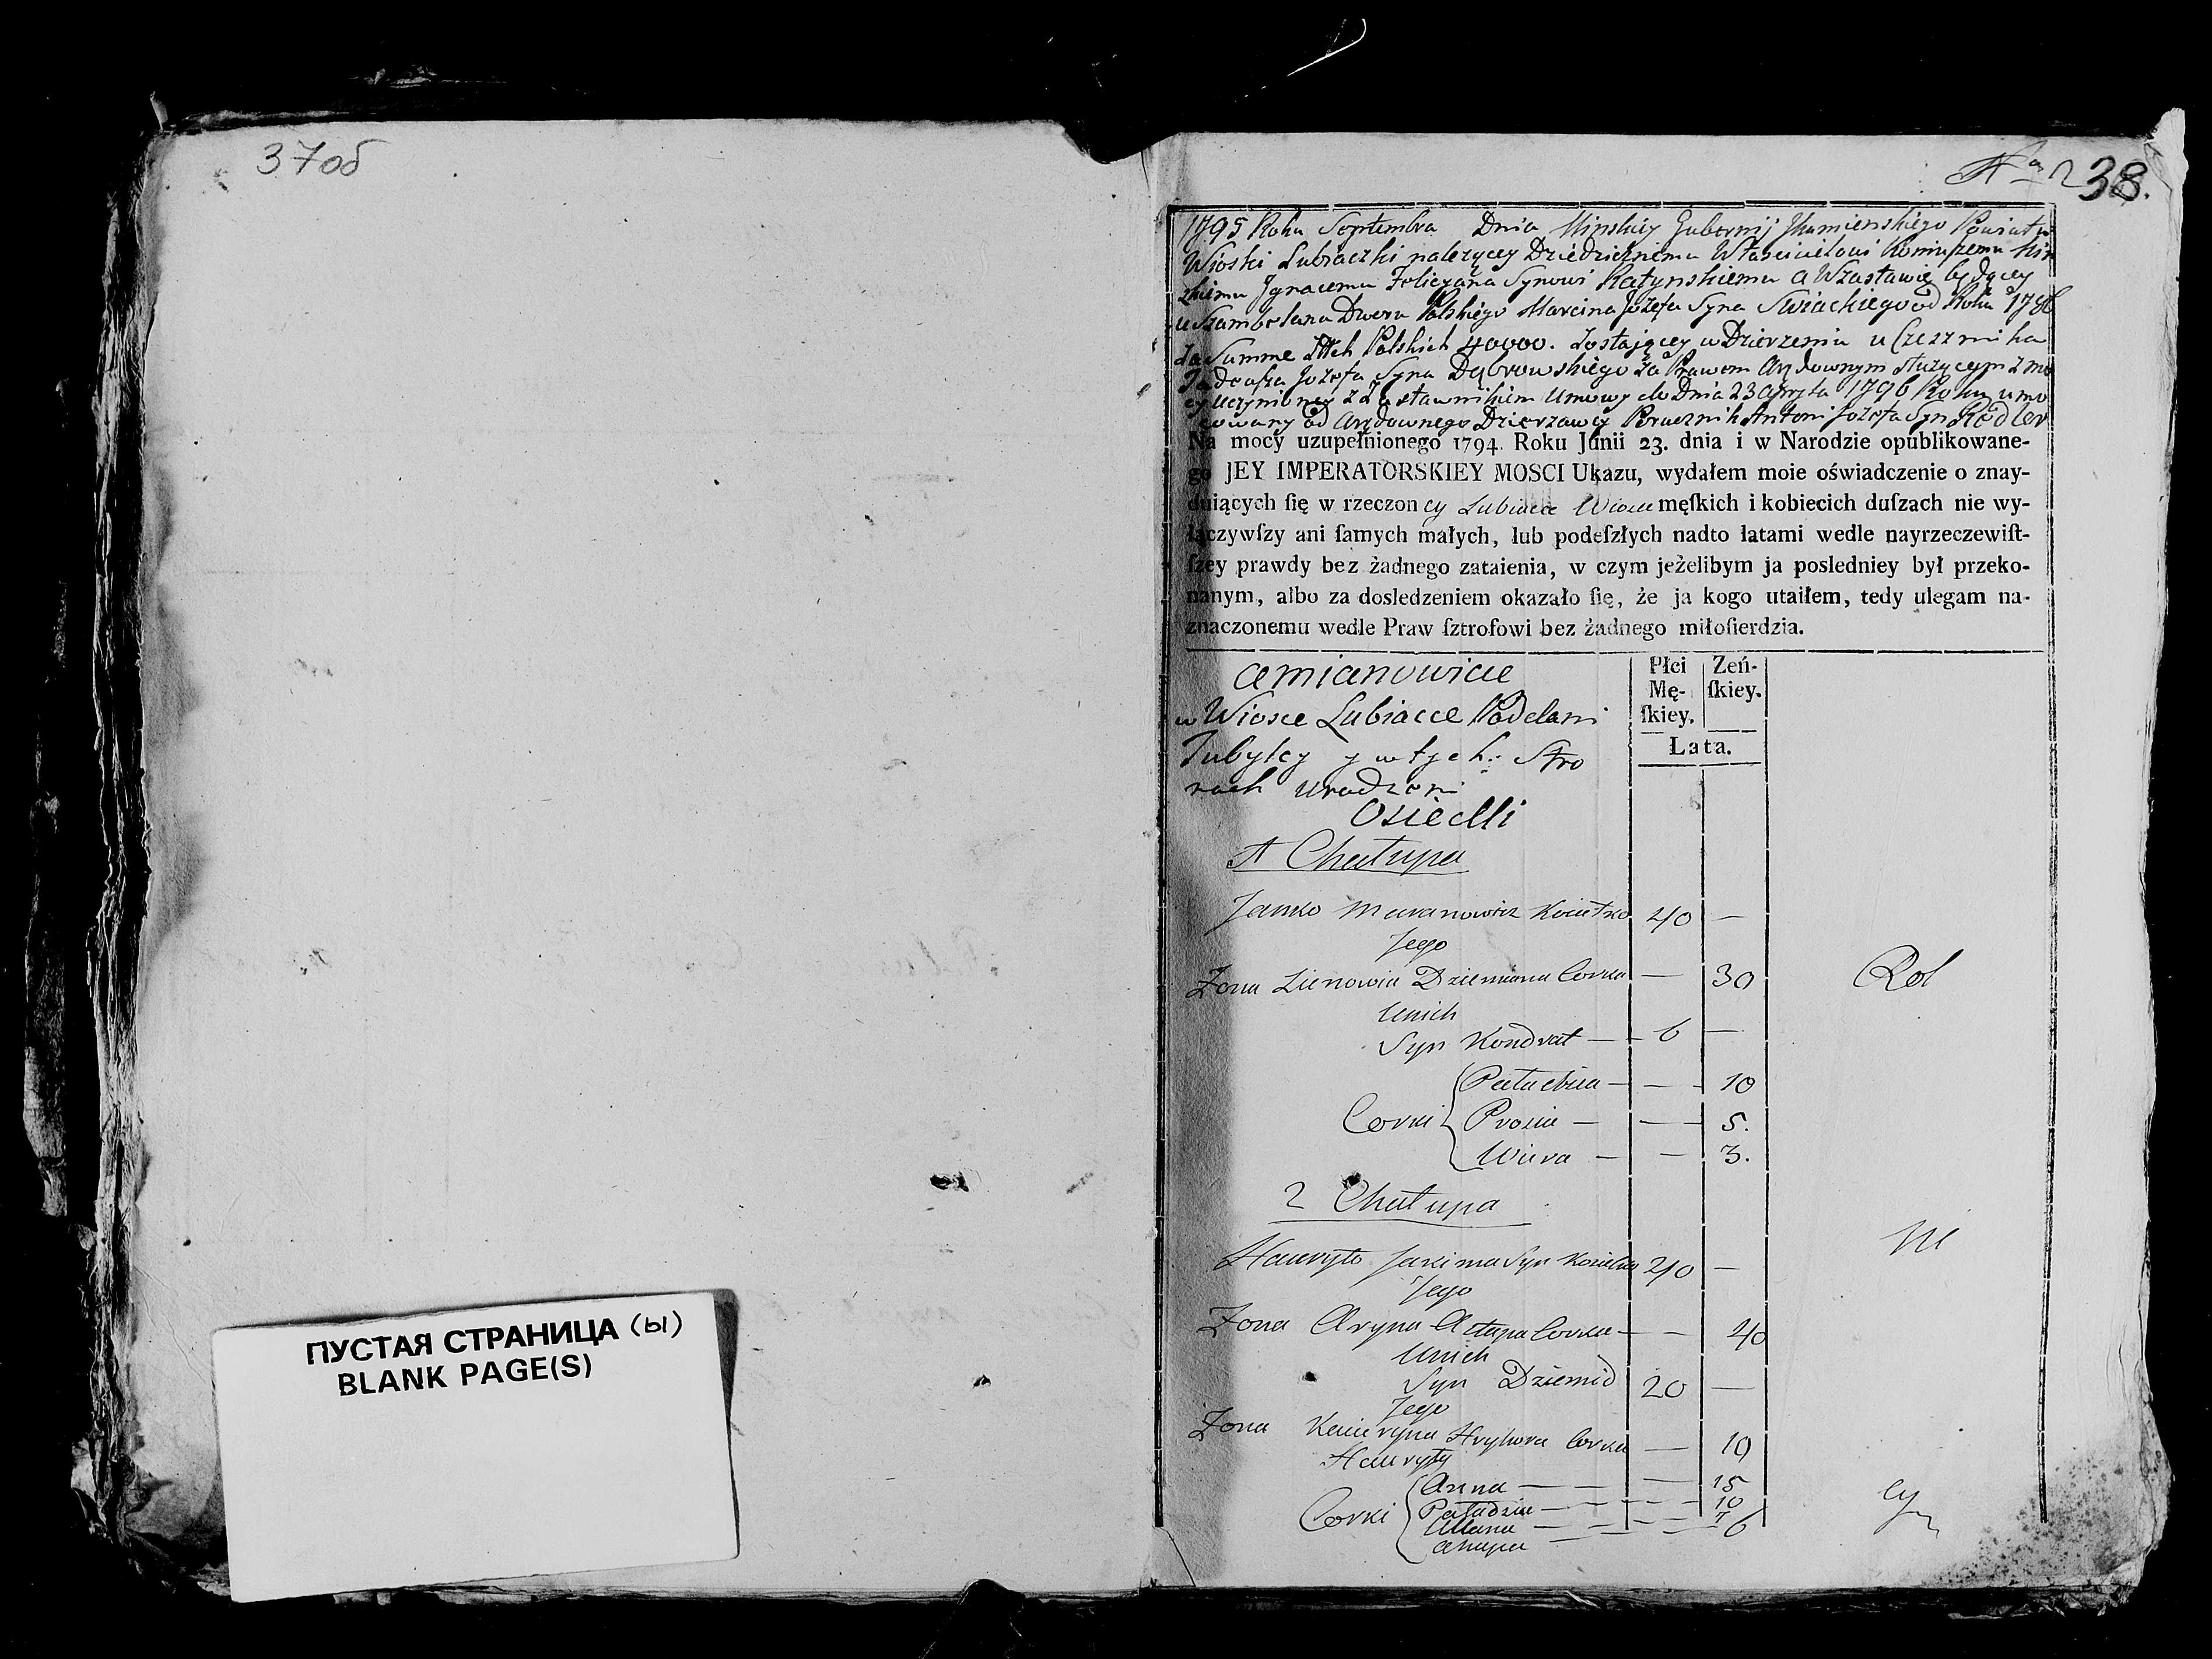 37об
38.
1795 Roku Septembra Dnia Minskiey Gubernij Jhumienskiego Powiatu
Wioski Lubiaczki nalezącey Dziedzicznemu Właścicielowi
Jgnacemu Felicyana Synowi Ratynskiemu a Wzastawie będącey
u Szambelana Dworu Polskiego Marcina Jozefa Syna Swiackiego od Roku 1786
za Summe Złtch Polskich 40000. Zostającey w Dzierzeniu u Czesznika
Jozefa Syna Dąbrowskiego za Prawem Arędownym służącym z mo
cy uczynioney z Zastawnikiem Umowy do Dnia 23 apryla 1796 Roku umo
cowany od Arędownego Dzierzawcy Porucznik Antoni Jozefa Syn
Na mocy uzupełnionego 1794. Roku Junii 23. dnia i w Narodzie opublikowane-
go JEY IMPERATORSKIEY MOSCI Ukazu, wydałem moie oświadczenie o znay-
duiących ſię w rzeczoney Lubiacce Wiosce męſkich i kobiecich duſzach nie wy-
łączywſzy ani ſamych małych, lub podeſzłych nadto latami wedle nayrzeczewiſt-
ſzey prawdy bez żadnego zataienia, w czym jeżelibym ja posledniey był przeko-
nanym, albo za dosledzeniem okazało ſię, że ja kogo utaiłem, tedy ulegam na-
znaczonemu wedle Praw ſztrofowi bez żadnego miłoſierdzia.
Płci Mę- ſkiey. Zeń- ſkiey.
Lata.
amianowicie
w Wiosce Lubiacce Poddani
Tubylcy y w tych: Stro
nach urodzeni
Osiedli
1 Chałupa
Janko 40 —
Jego
Zona Zienowia Dziemiana Corka — 30
Rol
Unich
Syn Kondrat — 6 —
— — 10
Corki Prosia — — 5.
Wiera — — 3.
2 Chałupa
ni
Hauryło Jakima Syn 40 —
Jego
Zona Aryna Corka — — 40
Unich
Syn Dziemid 20 —
Jego
Zona Kacieryna Hryhora Corka — 19
Hauryły
Anna — — 15
cy
Corki Paładzia — — 10
Ullana — — 7
Ahapa — — 6
ПУСТАЯ СТРАНИЦА (ы)
BLANK PAGE(S)